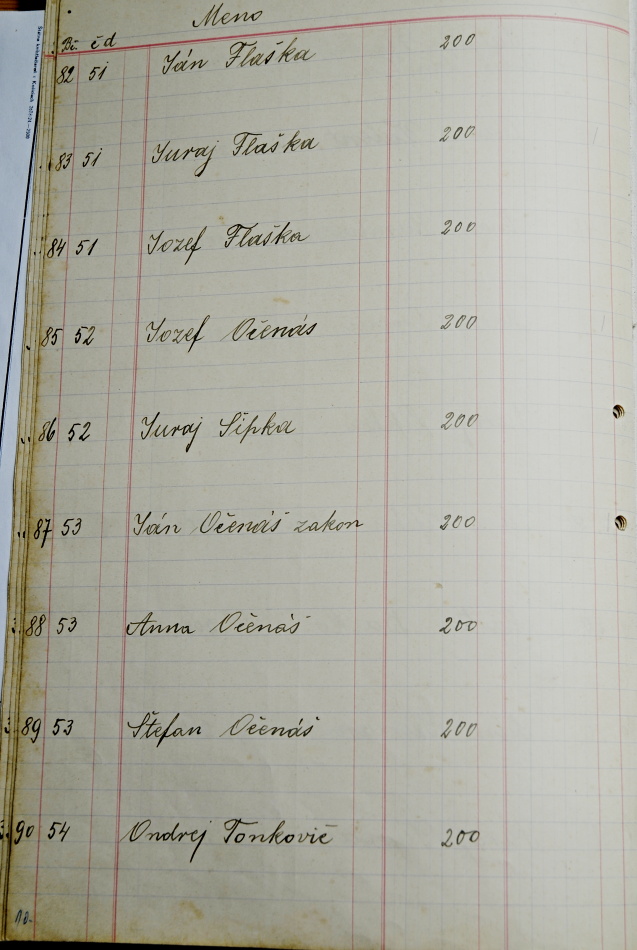 Meno
Bč. čd
82 51 Ján Flaška 200
83 51 Juraj Flaška 200
84 51 Jozef Flaška 200
85 52 Jozef Očenáš 200
86 52 Juraj Šipka 200
87 53 Ján Očenáš zakon 200
88 53 Anna Očenáš 200
89 53 Štefan Očenáš 200
90 54 Ondrej Tonkovič 200
10.